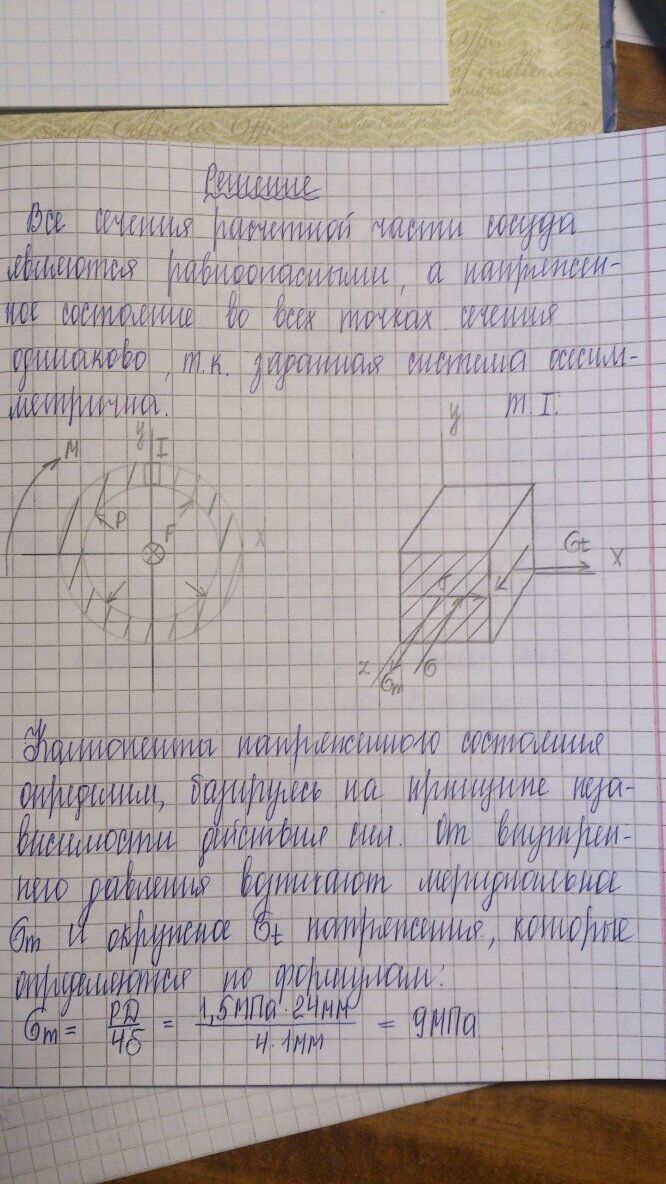 School College Co. Office
Решение
Все сечения расчетной части сосуда
являются равноопасными, а напряжен-
ное состояние во всех точках сечения
одинаково, т.к. заданная система осесим-
метрична.
т. I:
M
y
I
P
F
X
y
σt
X
z
σm
σ
Компоненты напряженного состояния
определим, базируясь на принципе неза-
висимости действия сил. От внутрен-
него давления возникают меридиальное
σm и окружное σt напряжения, которые
определяются по формулам:
σm = PD/4δ = 1,5МПа·24мм/4·1мм = 9МПа